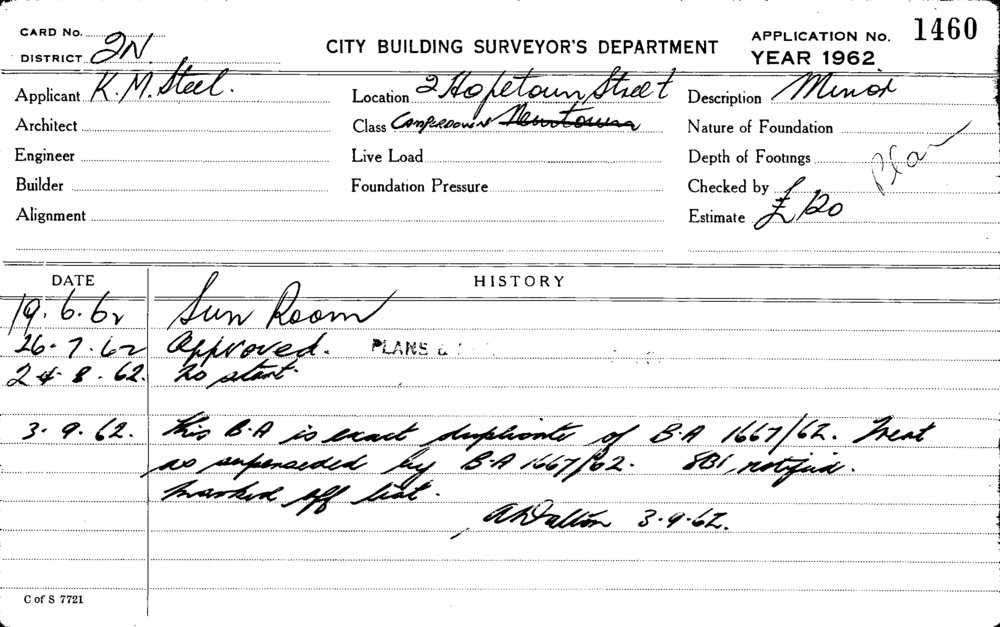 CARD No.
DISTRICT 2N
CITY BUILDING SURVEYOR'S DEPARTMENT
APPLICATION No. 1460
YEAR 1962
Applicant K. M. Steel.
Location 2 Hopetoun Street
Description Minor
Architect
Class CAMPERDOWN Newtown
Nature of Foundation
Engineer
Live Load
Depth of Footings
Plan
Builder
Foundation Pressure
Checked by
Alignment
Estimate £120
DATE
HISTORY
19.6.62 Sun Room
26.7.62 Approved. PLANS &
24.8.62. No start.
3.9.62. This B.A is exact duplicate of B.A 1667/62. Treat
as superseded by B.A 1667/62. SBI, notified.
Marked off list.
3.9.62.
C of S 7721